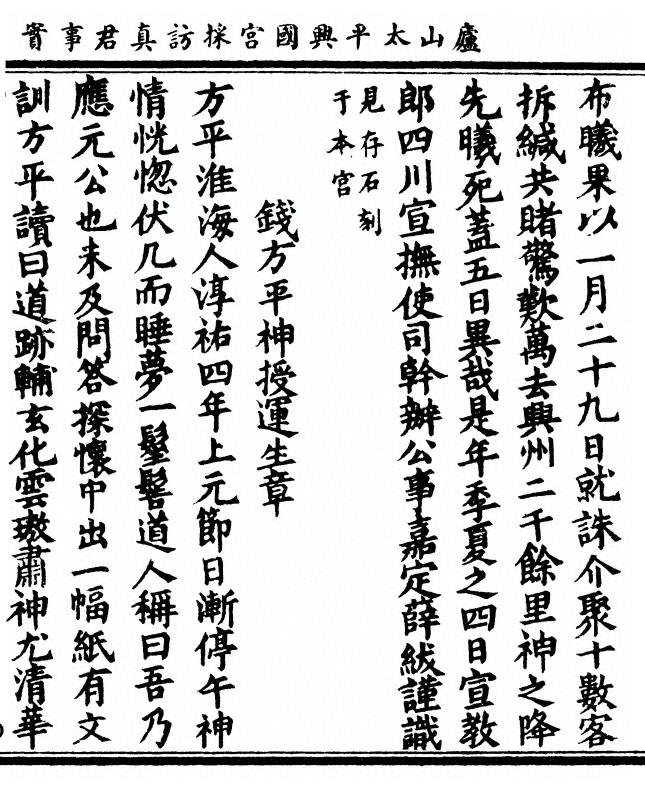 廬山太平興國宮採訪真君事實
布曦果以一月二十九日就誅介聚十數客
拆緘共睹驚歎萬去興州二千餘里神之降
先曦死蓋五日異哉是年季夏之四日宣教
郎四川宣撫使司幹辦公事嘉定薛紱謹識
見存石刻
于本宮
錢方平神授運生章
方平淮海人淳祐四年上元節日漸停午神
情恍惚伏几而睡夢一髽髻道人稱曰吾乃
應元公也未及問答探懷中出一幅紙有文
訓方平讀曰道跡輔玄化雲璈肅神尤清華